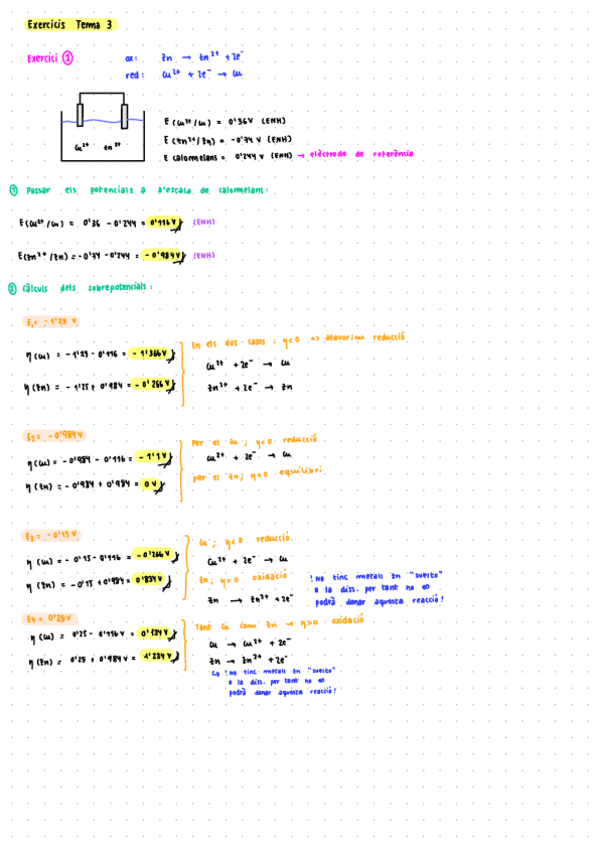 Exercicis Tema 3
Exercici 1
ox: Zn → Zn²⁺ + 2e⁻
red: Cu²⁺ + 2e⁻ → Cu
E (Cu²⁺/Cu) = 0'36 V (ENH)
E (Zn²⁺/Zn) = -0'74 V (ENH)
E calomelans = 0'244 V (ENH) → elèctrode de referència
Cu²⁺ Zn²⁺
1 Passar els potencials a l'escala de calomelans:
E(Cu²⁺/Cu) = 0'36 - 0'244 = 0'116 V (ENH)
E(Zn²⁺/Zn) = -0'74 - 0'244 = -0'984 V (ENH)
2 Càlculs dels sobrepotencials:
E₁ = -1'25 V
η(Cu) = -1'25 - 0'116 = -1'366 V
η(Zn) = -1'25 + 0'984 = -0'266 V
En els dos casos: η<0 => afavorim reducció
Cu²⁺ + 2e⁻ → Cu
Zn²⁺ + 2e⁻ → Zn
E₂ = -0'984 V
η(Cu) = -0'984 - 0'116 = -1'1 V
η(Zn) = -0'984 + 0'984 = 0 V
Per el Cu; η<0 reducció
Cu²⁺ + 2e⁻ → Cu
per el Zn; η=0 equilibri.
E₃ = -0'15 V
η(Cu) = -0'15 - 0'116 = -0'266 V
η(Zn) = -0'15 + 0'984 = 0'834 V
Cu; η<0 reducció.
Cu²⁺ + 2e⁻ → Cu
Zn; η>0 oxidació
Zn → Zn²⁺ + 2e⁻
! No tinc metall Zn "suelto"
a la diss. per tant no es
podrà donar aquesta reacció!
E₄ = 0'25 V
η(Cu) = 0'25 - 0'116 V = 0'134 V
η(Zn) = 0'25 + 0'984 V = 1'234 V
Tant Cu com Zn → η>0 oxidació
Cu → Cu²⁺ + 2e⁻
Zn → Zn²⁺ + 2e⁻
↳ ! No tinc metall Zn "suelto"
a la diss. per tant no es
podrà donar aquesta reacció!